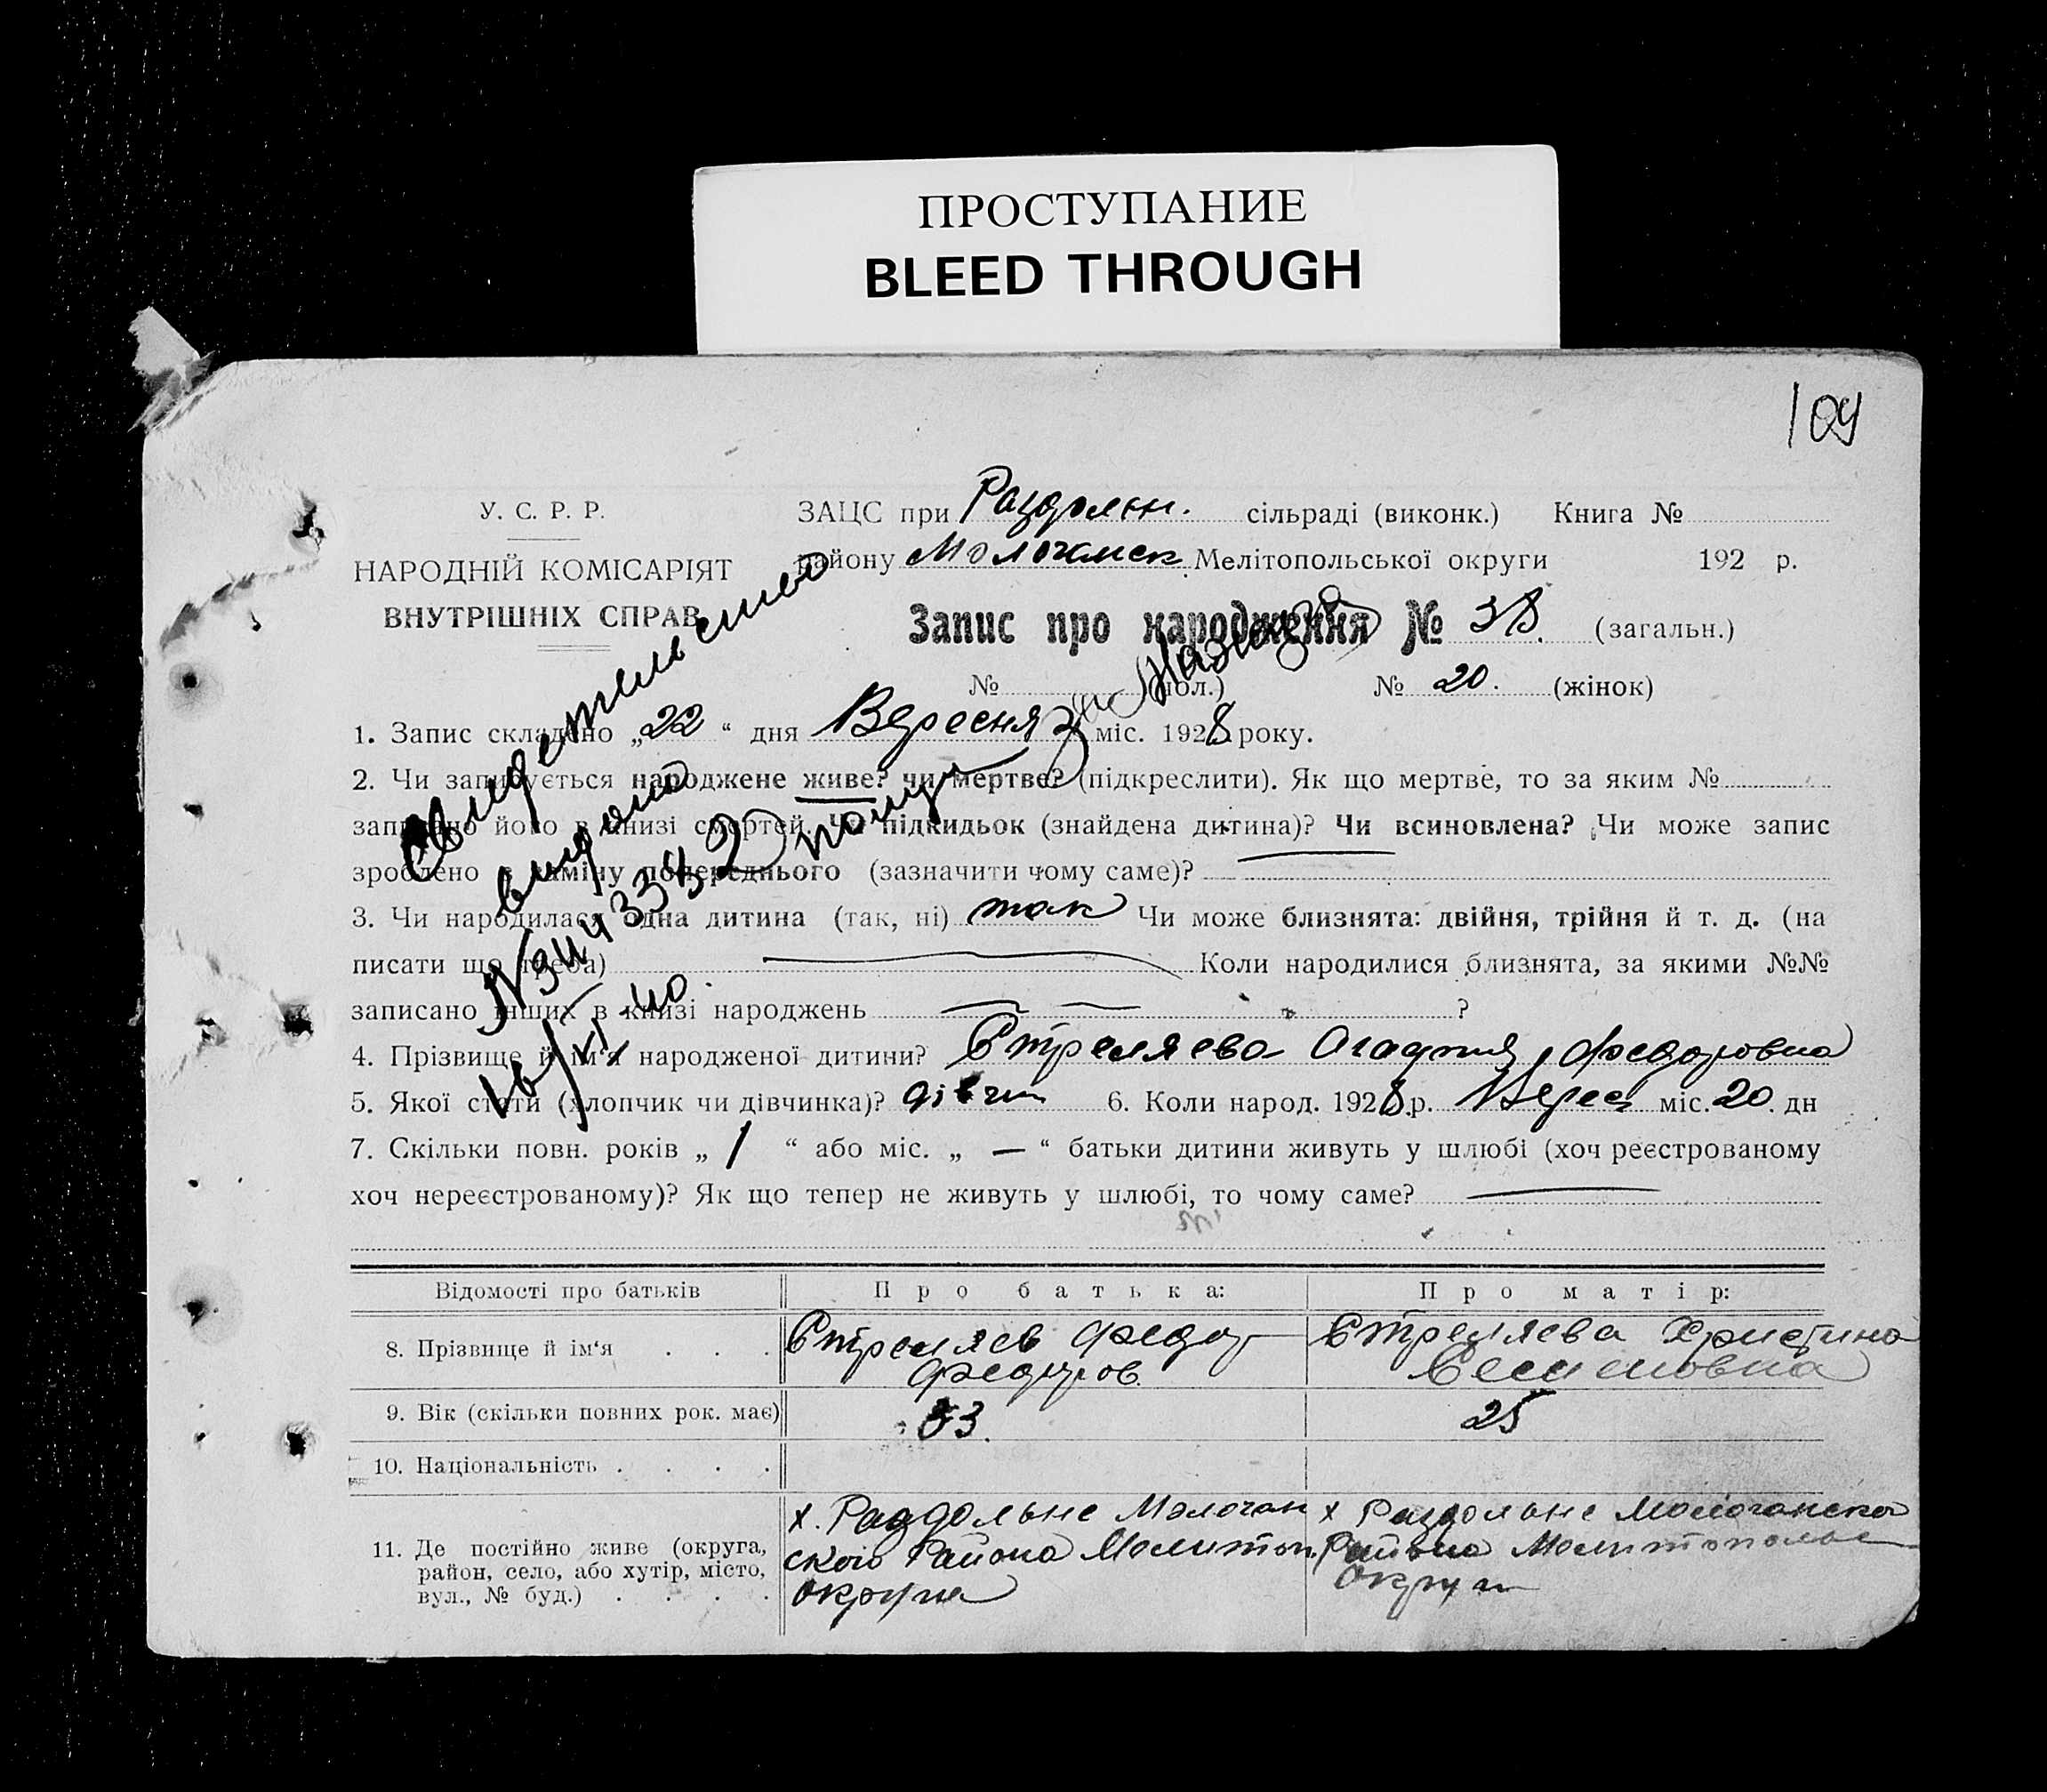 ПРОСТУПАНИЕ
BLEED THROUGH
109
У. С. Р. Р.
НАРОДНІЙ КОМІСАРІЯТ
ВНУТРІШНІХ СПРАВ
ЗАЦС при Раздольн. сільраді (виконк.) Книга №
району Молочанск Мелітопольської округи 192 р.
Запис про народження № 38. (загальн.)
№ (пол.) № 20. (жінок)
Свидетельство
выдано
16/VI 40.
1. Запис складено „22“ дня Вересня міс. 1928 року.
2. Чи записується народжене живе? чи мертве? (підкреслити). Як що мертве, то за яким №
записано його в книзі смертей. Чи підкидьок (знайдена дитина)? Чи всиновлена? Чи може запис
зроблено в заміну попереднього (зазначити чому саме)?
3. Чи народилася одна дитина (так, ні) так Чи може близнята: двійня, трійня й т. д. (на
писати що треба) Коли народилися близнята, за якими №№
записано інших в книзі народжень ?
4. Прізвище й ім'я народженої дитини? Стреляева Агафия Федоровна
5. Якої стати (хлопчик чи дівчинка)? дівчин 6. Коли народ. 1928 р. Верес міс. 20. дн
7. Скільки повн. років „ 1 “ або міс. „ — “ батьки дитини живуть у шлюбі (хоч реєстрованому
хоч нереєстрованому)? Як що тепер не живуть у шлюбі, то чому саме?
Відомості про батьків Про батька: Про матір:
8. Прізвище й ім'я . . . Стреляев Федор Стреляева Христина
Федоров. Семеновна
9. Вік (скільки повних рок. має) 33. 25
10. Національність . . . .
11. Де постійно живе (округа, район, село, або хутір, місто, вул., № буд.) . . . .
х. Раздольне Молочан
ского Района Мелитоп.
округи
х Раздольне Молочанско
Района Мелитопольс
Округи